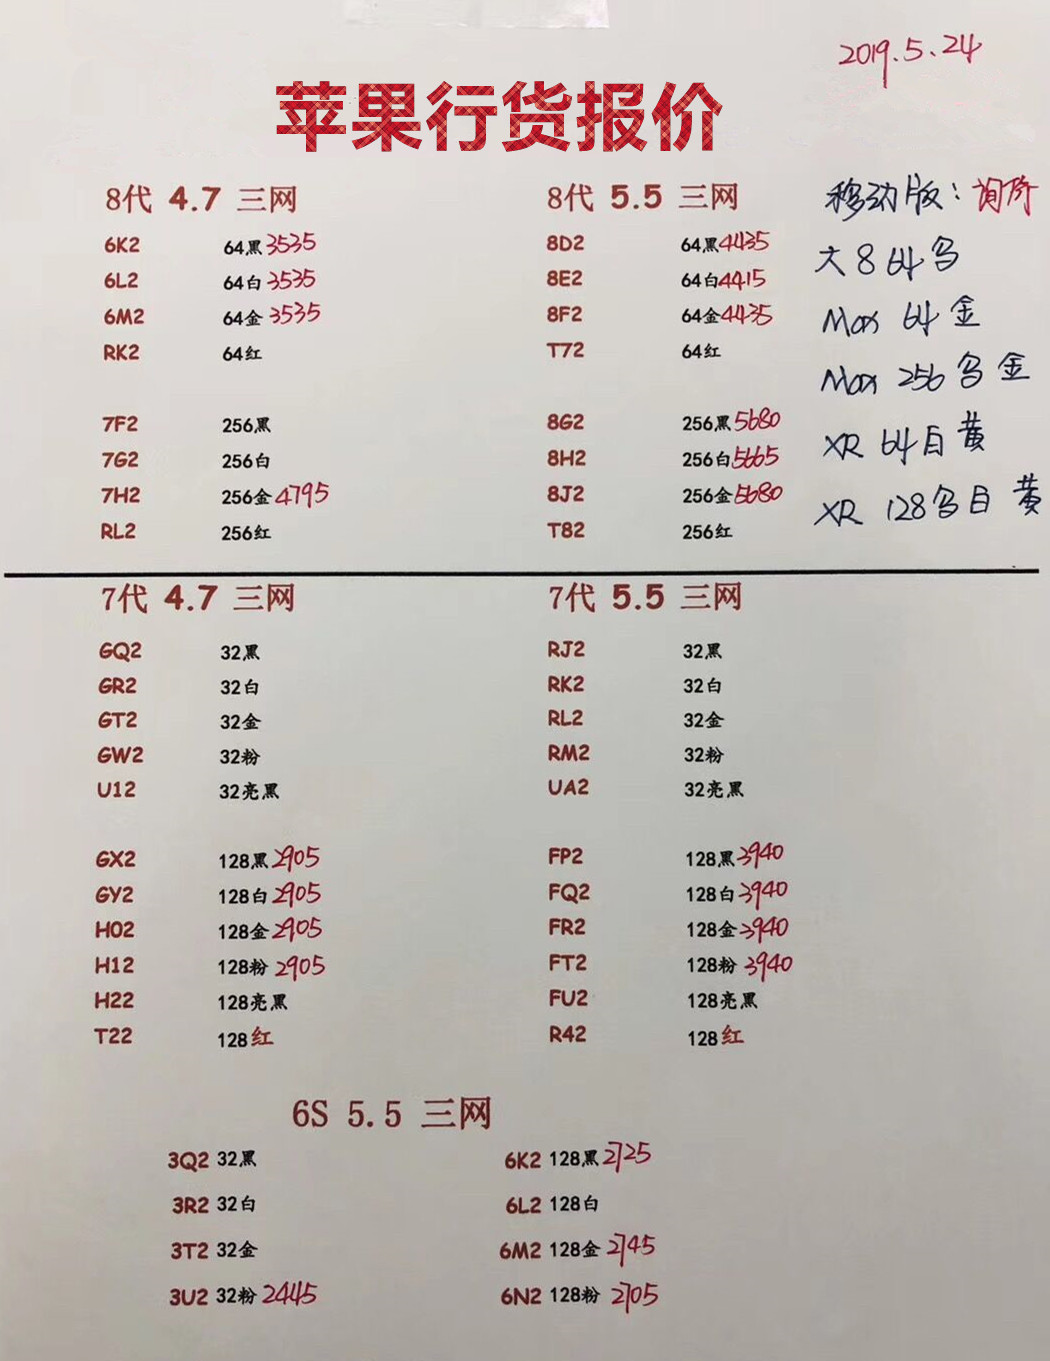 2019.5.24
苹果行货报价
8代 4.7 三网
6K2 64黑 3535
6L2 64白 3535
6M2 64金 3535
RK2 64红
7F2 256黑
7G2 256白
7H2 256金 4795
RL2 256红
8代 5.5 三网
8D2 64黑 4435
8E2 64白 4415
8F2 64金 4435
T72 64红
8G2 256黑 5680
8H2 256白 5665
8J2 256金 5680
T82 256红
移动版：询价
大 8 64
Max 64 金
Max 256 金
XR 64 白 黄
XR 128 白 黄
7代 4.7 三网
GQ2 32黑
GR2 32白
GT2 32金
GW2 32粉
U12 32亮黑
GX2 128黑 2905
GY2 128白 2905
H02 128金 2905
H12 128粉 2905
H22 128亮黑
T22 128红
7代 5.5 三网
RJ2 32黑
RK2 32白
RL2 32金
RM2 32粉
UA2 32亮黑
FP2 128黑 3940
FQ2 128白 3940
FR2 128金 3940
FT2 128粉 3940
FU2 128亮黑
R42 128红
6S 5.5 三网
3Q2 32黑
3R2 32白
3T2 32金
3U2 32粉 2445
6K2 128黑 2725
6L2 128白
6M2 128金 2745
6N2 128粉 2705